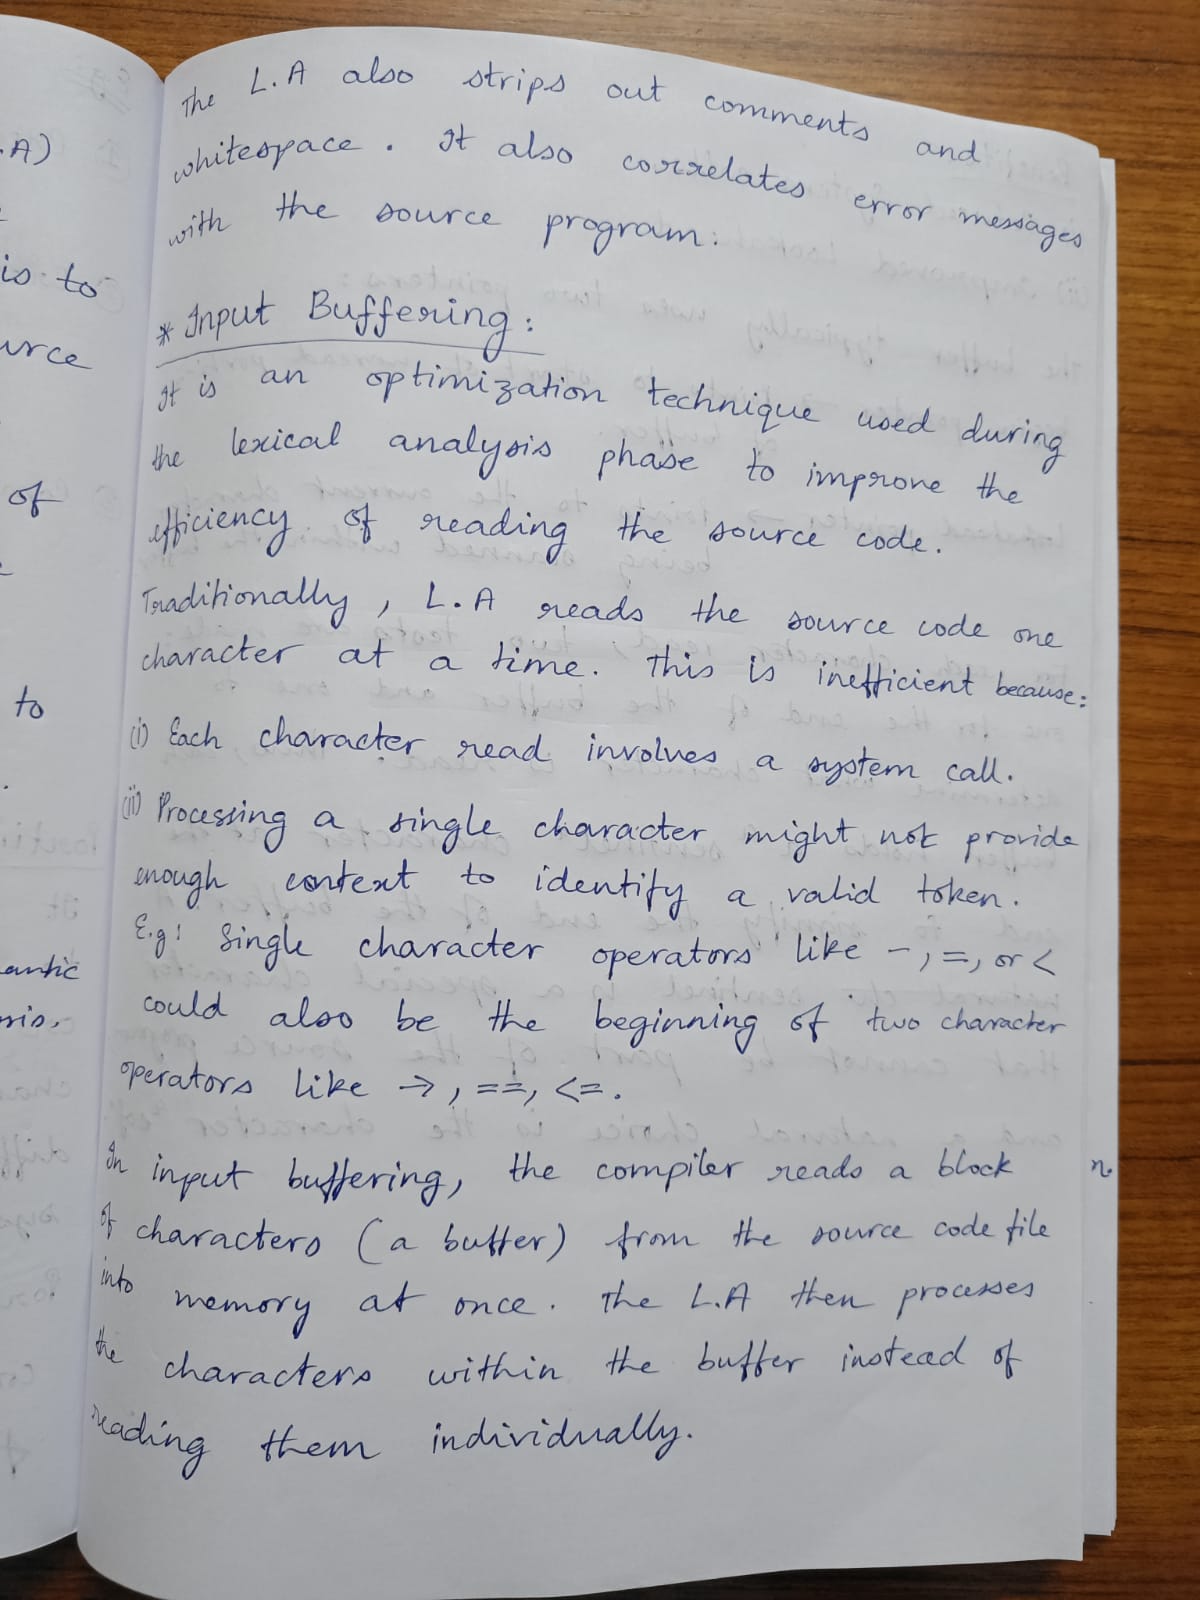 The L.A also strips out comments and
whitespace. It also correlates error messages
with the source program.
* Input Buffering:
It is an optimization technique used during
the lexical analysis phase to improve the
efficiency of reading the source code.
Traditionally, L.A reads the source code one
character at a time. This is inefficient because:
(i) Each character read involves a system call.
(ii) Processing a single character might not provide
enough context to identify a valid token.
E.g: Single character operators like -, =, or <
could also be the beginning of two character
operators like →, ==, <=.
In input buffering, the compiler reads a block
of characters (a buffer) from the source code file
into memory at once. The L.A then processes
the characters within the buffer instead of
reading them individually.
.A)
is to
urce
of
to
antic
n.